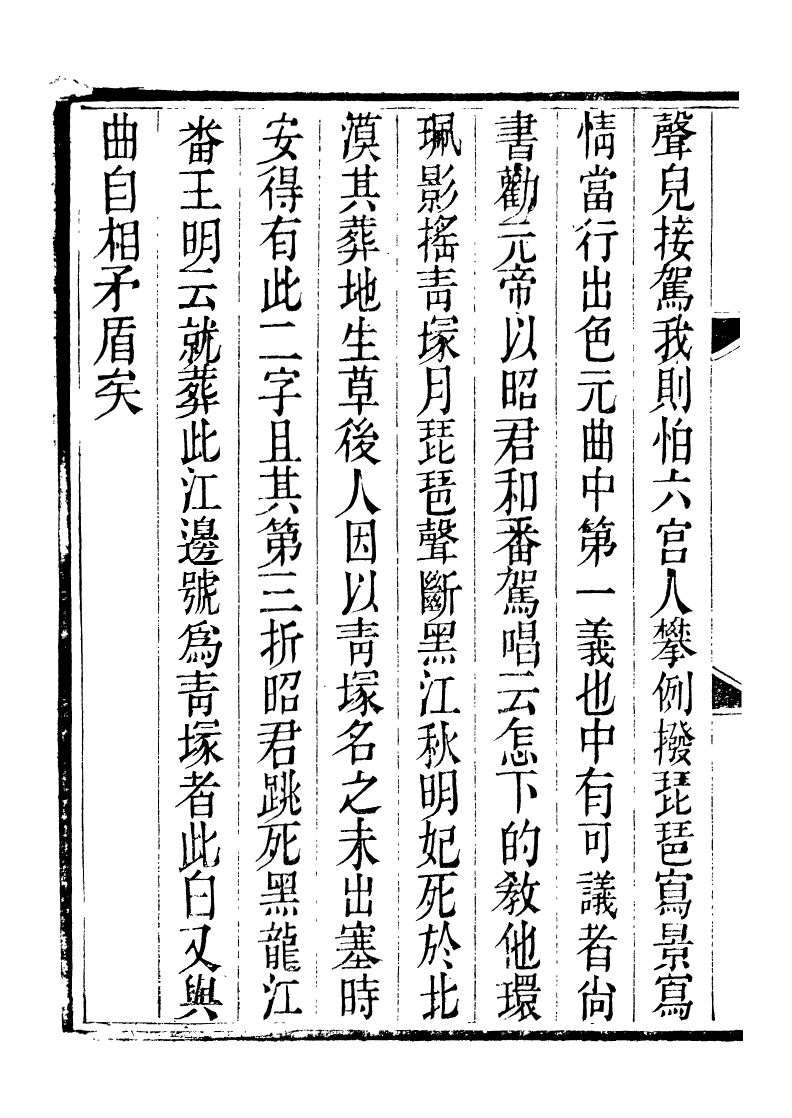 聲兒接駕我則怕六宮人攀例撥琵琶寫景寫
情當行出色元曲中第一義也中有可議者尙
書勸元帝以昭君和番駕唱云怎下的敎他環
珮影搖靑塚月琵琶聲斷黑江秋明妃死於北
漠其葬地生草後人因以靑塚名之未出塞時
安得有此二字且其第三折昭君跳死黑龍江
番王明云就葬此江邊號爲靑塚者此白又與
曲自相矛盾矣